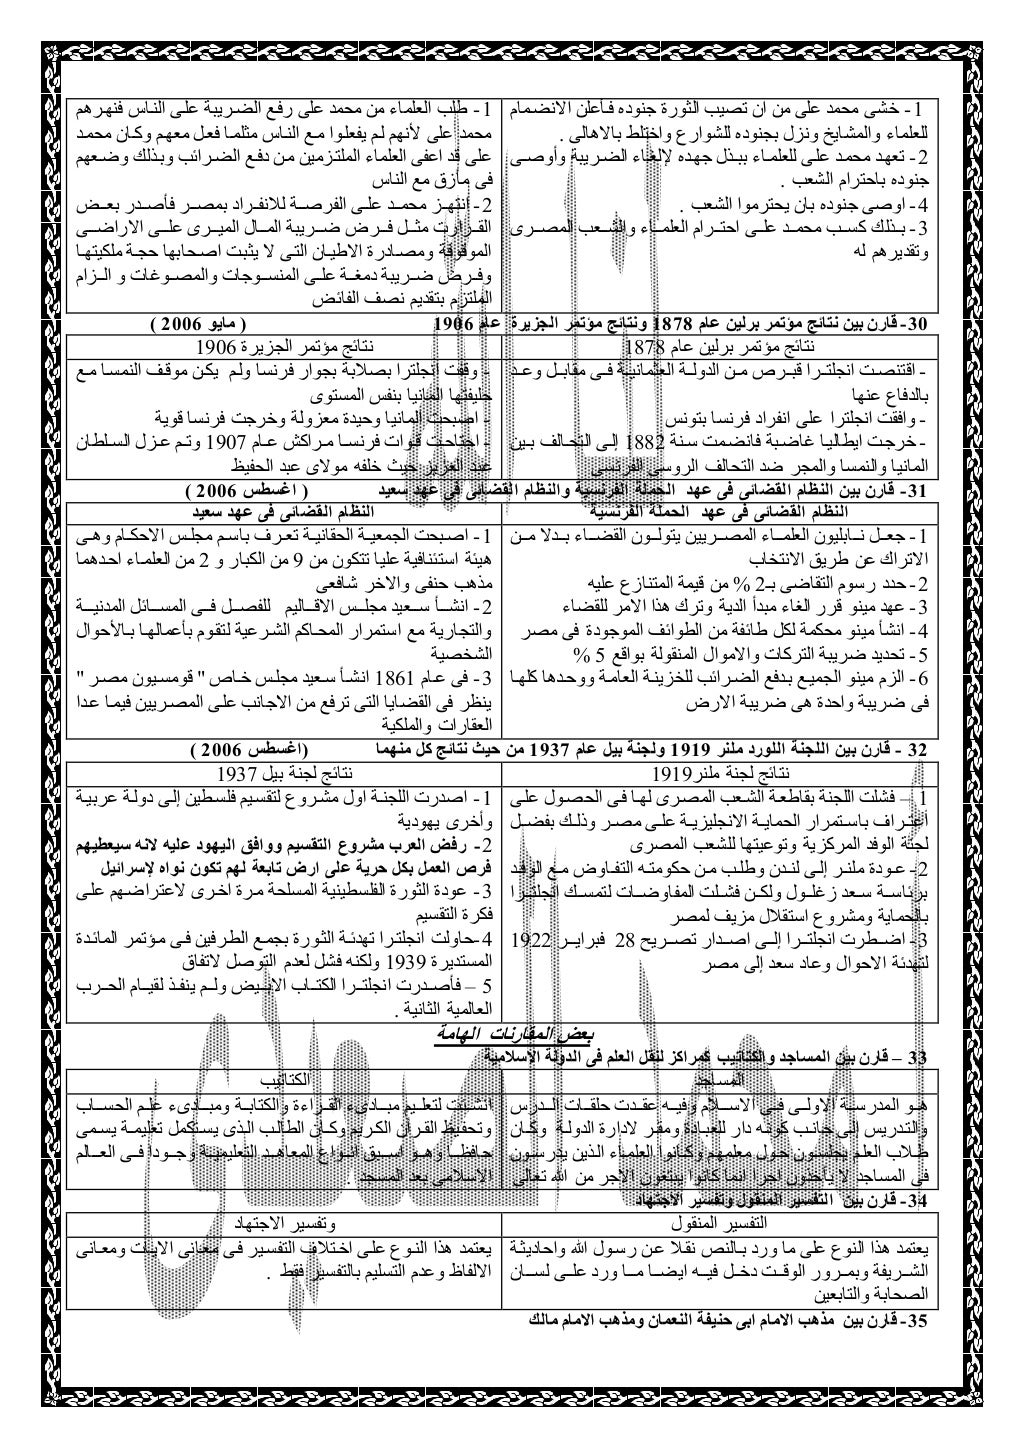 1- خشى محمد على من ان تصيب الثورة جنوده فأعلن الانضمام
للعلماء والمشايخ ونزل بجنوده للشوارع واختلط بالاهالى .
2- تعهد محمد على للعلماء ببذل جهده لإلغاء الضريبة وأوصى
جنوده باحترام الشعب .
4- اوصى جنوده بان يحترموا الشعب .
3- بذلك كسب محمد على احترام العلماء والشعب المصرى
وتقديرهم له
1- طلب العلماء من محمد على رفع الضريبة على الناس فنهرهم
محمد على لأنهم لم يفعلوا مع الناس مثلما فعل معهم وكان محمد
على قد اعفى العلماء الملتزمين من دفع الضرائب وبذلك وضعهم
فى مأزق مع الناس
2- انتهز محمد على الفرصة للانفراد بمصر فأصدر بعض
القرارت مثل فرض ضريبة المال الميرى على الاراضى
الموقوفة ومصادرة الاطيان التى لا يثبت اصحابها حجة ملكيتها
وفرض ضريبة دمغة على المنسوجات والمصوغات و الزام
الملتزم بتقديم نصف الفائض
30- قارن بين نتائج مؤتمر برلين عام 1878 ونتائج مؤتمر الجزيرة عام 1906 ( مايو 2006 )
نتائج مؤتمر برلين عام 1878
نتائج مؤتمر الجزيرة 1906
- اقتنصت انجلترا قبرص من الدولة العثمانية فى مقابل وعد
بالدفاع عنها
- وافقت انجلترا على انفراد فرنسا بتونس
- خرجت ايطاليا غاضبة فانضمت سنة 1882 إلى التحالف بين
المانيا والنمسا والمجر ضد التحالف الروسى الفرنسى
- وقفت انجلترا بصلابة بجوار فرنسا ولم يكن موقف النمسا مع
حليفتها المانيا بنفس المستوى
- اصبحت المانيا وحيدة معزولة وخرجت فرنسا قوية
- اجتاحت قوات فرنسا مراكش عام 1907 وتم عزل السلطان
عبد العزيز حيث خلفه مولاى عبد الحفيظ
31- قارن بين النظام القضائى فى عهد الحملة الفرنسية والنظام القضائى فى عهد سعيد ( اغسطس 2006 )
النظام القضائى فى عهد الحملة الفرنسية
النظام القضائى فى عهد سعيد
1- جعل نابليون العلماء المصريين يتولون القضاء بدلا من
الاتراك عن طريق الانتخاب
2- حدد رسوم التقاضى بـ2 % من قيمة المتنازع عليه
3- عهد مينو قرر الغاء مبدأ الدية وترك هذا الامر للقضاء
4- انشأ مينو محكمة لكل طائفة من الطوائف الموجودة فى مصر
5- تحديد ضريبة التركات والاموال المنقولة بواقع 5 %
6- الزم مينو الجميع بدفع الضرائب للخزينة العامة ووحدها كلها
فى ضريبة واحدة هى ضريبة الارض
1- اصبحت الجمعية الحقانية تعرف باسم مجلس الاحكام وهى
هيئة استئنافية عليا تتكون من 9 من الكبار و 2 من العلماء احدهما
مذهب حنفى والاخر شافعى
2- انشأ سعيد مجلس الاقاليم للفصل فى المسائل المدنية
والتجارية مع استمرار المحاكم الشرعية لتقوم بأعمالها بالأحوال
الشخصية
3- فى عام 1861 انشأ سعيد مجلس خاص " قومسيون مصر "
ينظر فى القضايا التى ترفع من الاجانب على المصريين فيما عدا
العقارات والملكية
32 - قارن بين اللجنة اللورد ملنر 1919 ولجنة بيل عام 1937 من حيث نتائج كل منهما (اغسطس 2006 )
نتائج لجنة ملنر1919
نتائج لجنة بيل 1937
1 – فشلت اللجنة بقاطعة الشعب المصرى لها فى الحصول على
أعتراف باستمرار الحماية الانجليزية على مصر وذلك بفضل
لجنة الوفد المركزية وتوعيتها للشعب المصرى
2- عودة ملنر إلى لندن وطلب من حكومته التفاوض مع الوفد
برئاسة سعد زغلول ولكن فشلت المفاوضات لتمسك انجلترا
بالحماية ومشروع استقلال مزيف لمصر
3- اضطرت انجلترا إلى اصدار تصريح 28 فبراير 1922
لتهدئة الاحوال وعاد سعد إلى مصر
1- اصدرت اللجنة اول مشروع لتقسيم فلسطين إلى دولة عربية
وأخرى يهودية
2- رفض العرب مشروع التقسيم ووافق اليهود عليه لانه سيعطيهم
فرص العمل بكل حرية على ارض تابعة لهم تكون نواه لإسرائيل
3- عودة الثورة الفلسطينية المسلحة مرة اخرى لاعتراضهم على
فكرة التقسيم
4-حاولت انجلترا تهدئة الثورة بجمع الطرفين فى مؤتمر المائدة
المستديرة 1939 ولكنه فشل لعدم التوصل لاتفاق
5 – فأصدرت انجلترا الكتاب الابيض ولم ينفذ لقيام الحرب
العالمية الثانية .
بعض المقارنات الهامة
33 – قارن بين المساجد والكتاتيب كمراكز لنقل العلم فى الدولة الاسلامية
المساجد
الكتاتيب
هو المدرسة الاولى فى الاسلام وفيه عقدت حلقات الدرس
والتدريس إلى جانب كونه دار للعبادة ومقر لادارة الدولة وكان
طلاب العلم يجلسون حول معلمهم وكانوا العلماء الذين يدرسون
فى المساجد لا يأخذون اجرا انما كانوا يبتغون الاجر من الله تعالى
انشئت لتعليم مبادىء القراءة والكتابة ومبادىء علم الحساب
وتحفيظ القرآن الكريم وكان الطالب الذى يستكمل تعليمة يسمى
حافظا وهو اسبق انواع المعاهد التعليمية وجودا فى العالم
الاسلامى بعد المسجد .
34- قارن بين التفسير المنقول وتفسير الاجتهاد
التفسير المنقول
وتفسير الاجتهاد
يعتمد هذا النوع على ما ورد بالنص نقلا عن رسول الله واحاديثة
الشريفة وبمرور الوقت دخل فيه ايضا ما ورد على لسان
الصحابة والتابعين
يعتمد هذا النوع على اختلاف التفسير فى معانى الايات ومعانى
الالفاظ وعدم التسليم بالتفسير فقط .
35- قارن بين مذهب الامام ابى حنيفة النعمان ومذهب الامام مالك